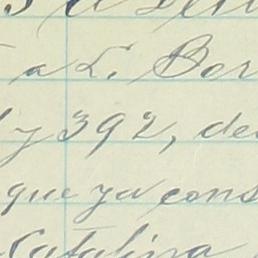 a L. Bor
y 392, de
que ya cons
Catalina